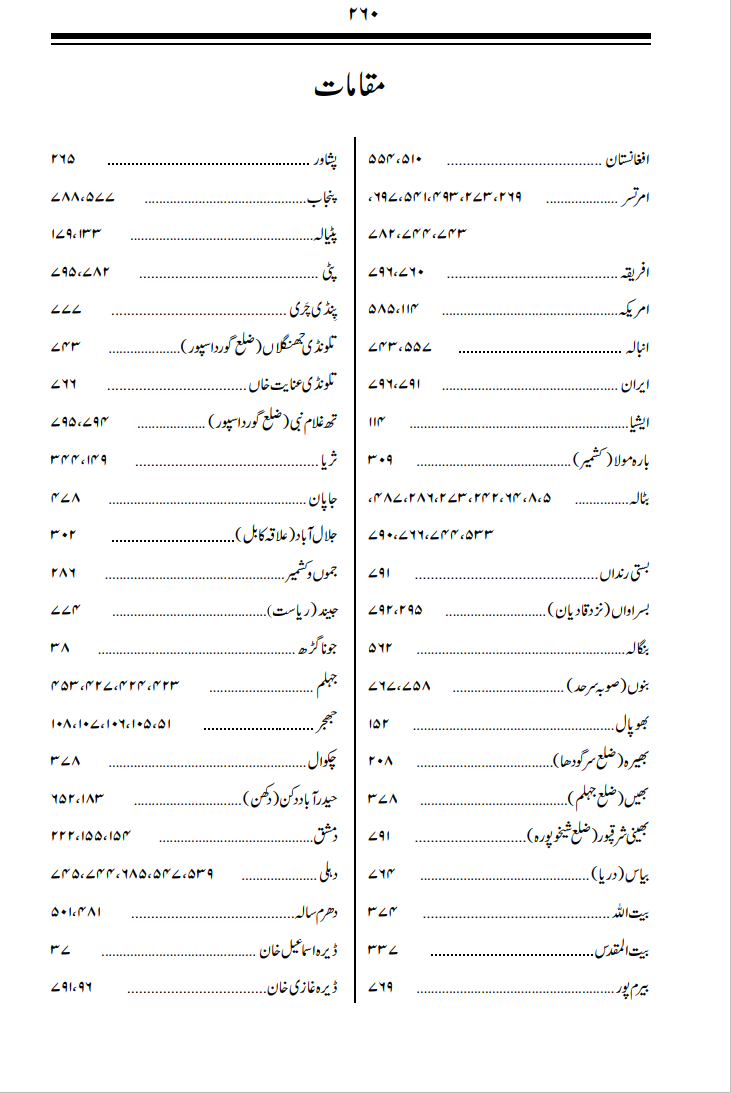 ۲۶۰
مقامات
افغانستان ........ ۵۱۰، ۵۵۴
امرتسر ........ ۲۶۹، ۲۷۳، ۴۹۳، ۵۴۱، ۶۹۷،
۷۴۳، ۷۴۴، ۷۸۲
افریقہ ........ ۷۶۰، ۷۹۶
امریکہ ........ ۱۱۴، ۵۸۵
انبالہ ........ ۵۵۷، ۷۴۳
ایران ........ ۷۹۱، ۷۹۶
ایشیا ........ ۱۱۴
بارہ مولا (کشمیر) ........ ۳۰۹
بٹالہ ........ ۵، ۸، ۶۴، ۲۴۲، ۲۷۳، ۲۸۶، ۴۸۷،
۵۳۳، ۷۴۴، ۷۶۶، ۷۹۰
بستی رنداں ........ ۷۹۱
بسراواں (نزد قادیان) ........ ۲۹۵، ۷۹۲
بنگالہ ........ ۵۶۲
بنوں (صوبہ سرحد) ........ ۷۵۸، ۷۶۷
بھوپال ........ ۱۵۲
بھیرہ (ضلع سرگودھا) ........ ۲۰۸
بھیں (ضلع جہلم) ........ ۳۷۸
بھینی شرقپور (ضلع شیخوپورہ) ........ ۷۹۱
بیاس (دریا) ........ ۷۶۴
بیت اللہ ........ ۳۷۴
بیت المقدس ........ ۳۳۷
بیرم پور ........ ۷۶۹
پشاور ........ ۲۶۵
پنجاب ........ ۵۷۷، ۷۸۸
پٹیالہ ........ ۱۳۳، ۱۷۹
پٹی ........ ۷۸۲، ۷۹۵
پنڈی چری ........ ۷۷۷
تلونڈی جھنگلاں (ضلع گورداسپور) ........ ۷۴۳
تلونڈی عنایت خاں ........ ۷۶۶
تھ غلام نبی (ضلع گورداسپور) ........ ۷۹۴، ۷۹۵
ثریا ........ ۱۴۹، ۳۴۴
جاپان ........ ۴۷۸
جلال آباد (علاقہ کابل) ........ ۳۰۲
جموں و کشمیر ........ ۲۸۶
جیند (ریاست) ........ ۷۷۴
جونا گڑھ ........ ۳۸
جہلم ........ ۴۲۳، ۴۲۴، ۴۲۷، ۴۵۳
جھجر ........ ۵۱، ۱۰۵، ۱۰۶، ۱۰۷، ۱۰۸
چکوال ........ ۳۷۸
حیدرآباد دکن (دکھن) ........ ۱۸۳، ۶۵۲
دمشق ........ ۱۵۴، ۱۵۵، ۲۲۲
دہلی ........ ۵۳۹، ۵۴۷، ۶۸۵، ۷۴۴، ۷۴۵
دھرم سالہ ........ ۴۸۱، ۵۰۱
ڈیرہ اسماعیل خان ........ ۳۷
ڈیرہ غازی خان ........ ۹۶، ۷۹۱